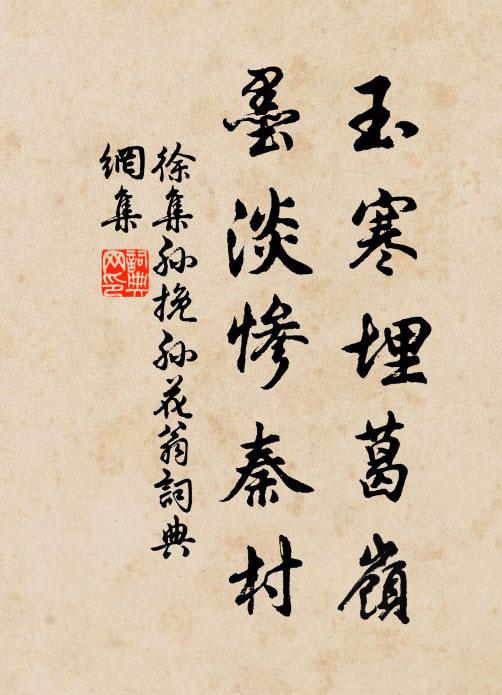 玉寒埋葛嶺
墨淡慘秦村
徐集孙挽孙花翁詞典
網集
詞典网印